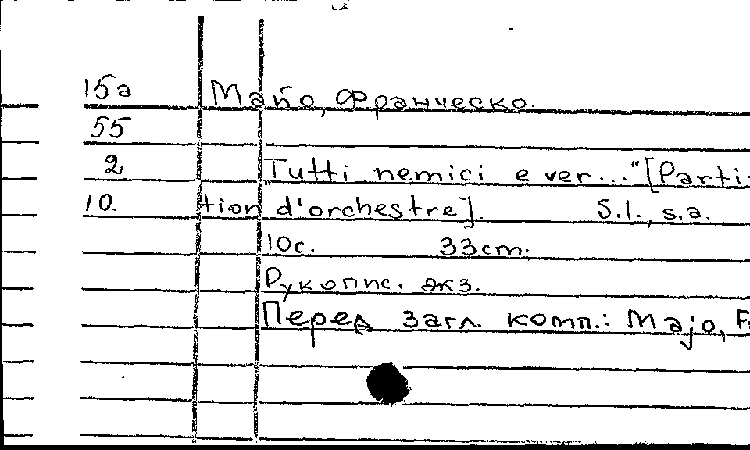 15а Майо, Франческо.
55
2 "Tutti nemici e ver..." [Parti-
10. tion d'orchestre]. S.l., s.a.
10с. 33cm.
Рукопис. экз.
Перед загл. комп.: Majo,